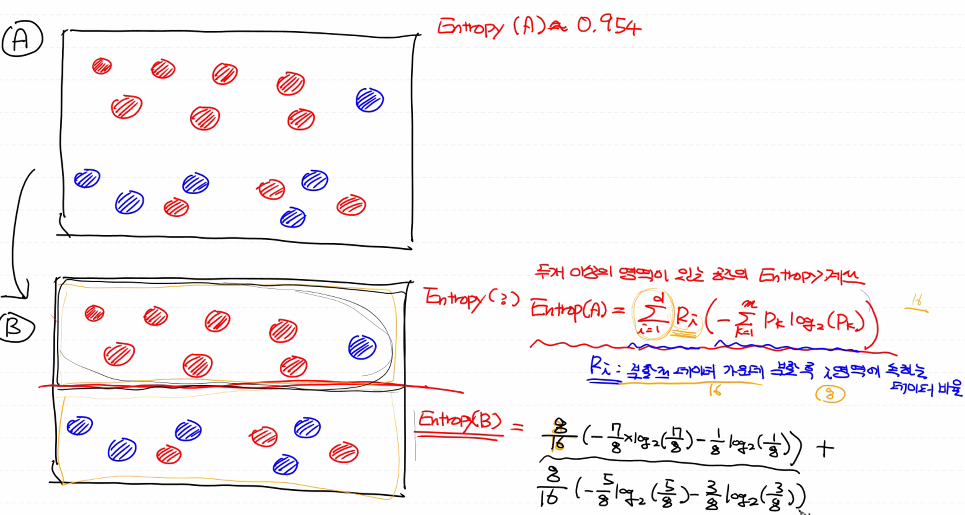 A
Entropy (A) ≈ 0.954
두개 이상의 영역이 있는 공간의 Entropy 계산
B
Entropy(B)
Entrop(A) = d∑i=1 Ri (- m∑k=1 Pk log2(Pk))
16
Ri : 분할전 데이터 가운데 분할 후 i영역에 속하는
데이터 비율
16
8
Entropy(B) = 8/16 (-7/8×log2(7/8)-1/8 log2(1/8)) +
8/16 (-5/8 log2(5/8)-3/8 log2(3/8))